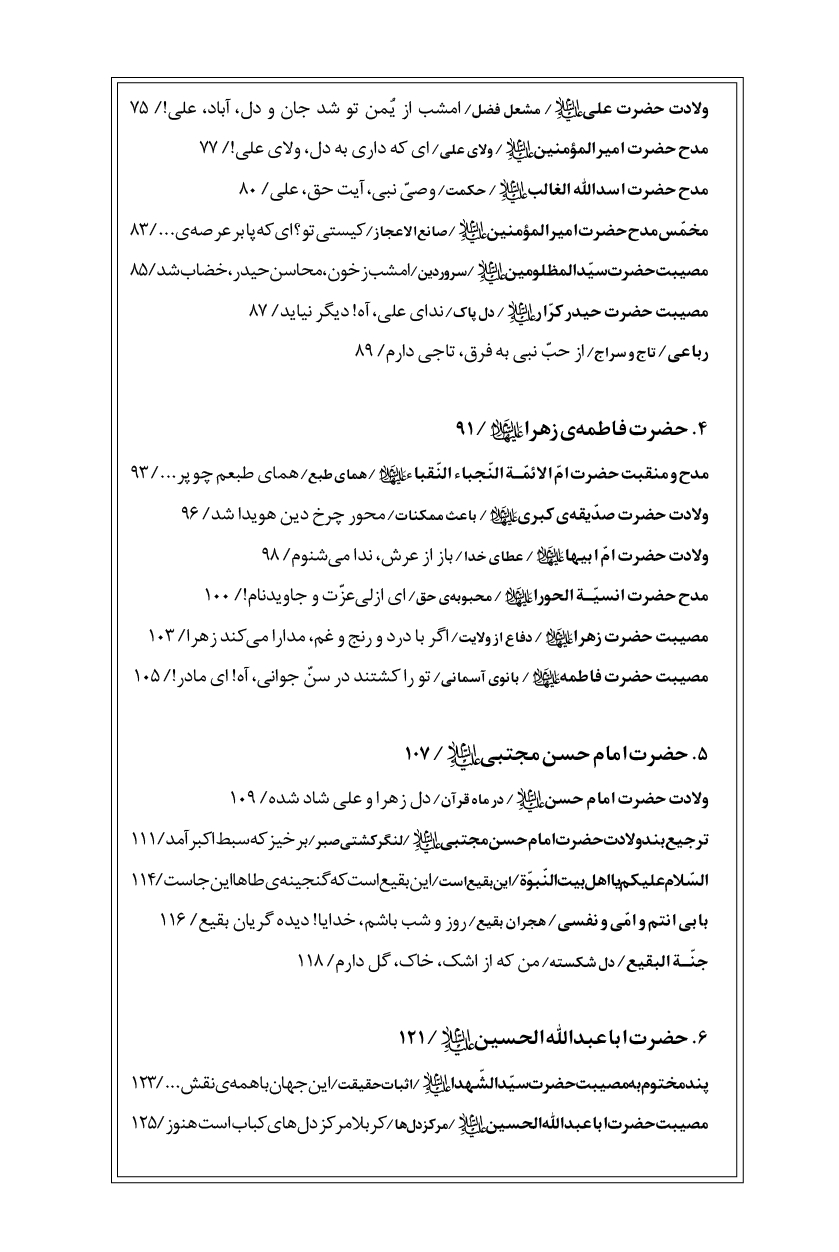 ولادت حضرت علی علیه‌السلام / مشعل فضل/ امشب از یُمن تو شد جان و دل، آباد، علی!/ ۷۵
مدح حضرت امیرالمؤمنین علیه‌السلام / ولای علی/ ای که داری به دل، ولای علی!/ ۷۷
مدح حضرت اسدالله الغالب علیه‌السلام / حکمت/ وصیّ نبی، آیت حق، علی/ ۸۰
مخمّس مدح حضرت امیرالمؤمنین علیه‌السلام / صانع الاعجاز/ کیستی تو؟ ای که پا بر عرصه‌ی.../ ۸۳
مصیبت حضرت سیّدالمظلومین علیه‌السلام / سرور دین/ امشب ز خون، محاسن حیدر، خضاب شد/ ۸۵
مصیبت حضرت حیدر کرّار علیه‌السلام / دل پاک/ ندای علی، آه! دیگر نیاید/ ۸۷
رباعی/ تاج و سراج/ از حبّ نبی به فرق، تاجی دارم/ ۸۹
۴. حضرت فاطمه‌ی زهرا علیهاالسلام / ۹۱
مدح و منقبت حضرت امّ الائمّـة النّجباء النّقباء علیهاالسلام / همای طبع/ همای طبعم چو پر.../ ۹۳
ولادت حضرت صدّیقه‌ی کبری علیهاالسلام / باعث ممکنات/ محور چرخ دین هویدا شد/ ۹۶
ولادت حضرت امّ ابیها علیهاالسلام / عطای خدا/ باز از عرش، ندا می‌شنوم/ ۹۸
مدح حضرت انسیّـة الحورا علیهاالسلام / محبوبه‌ی حق/ ای ازلی‌عزّت و جاویدنام!/ ۱۰۰
مصیبت حضرت زهرا علیهاالسلام / دفاع از ولایت/ اگر با درد و رنج و غم، مدارا می‌کند زهرا/ ۱۰۳
مصیبت حضرت فاطمه علیهاالسلام / بانوی آسمانی/ تو را کشتند در سنّ جوانی، آه! ای مادر!/ ۱۰۵
۵. حضرت امام حسن مجتبی علیه‌السلام / ۱۰۷
ولادت حضرت امام حسن علیه‌السلام / در ماه قرآن/ دل زهرا و علی شاد شده/ ۱۰۹
ترجیع بند ولادت حضرت امام حسن مجتبی علیه‌السلام / لنگر کشتی صبر/ برخیز که سبط اکبر آمد/ ۱۱۱
السّلام علیکم یا اهل بیت النّبوّة/ این بقیع است/ این بقیع است که گنجینه‌ی طاها این جاست/ ۱۱۴
بابی انتم و امّی و نفسی/ هجران بقیع/ روز و شب باشم، خدایا! دیده گریان بقیع/ ۱۱۶
جنّـة البقیع/ دل شکسته/ من که از اشک، خاک، گل دارم/ ۱۱۸
۶. حضرت اباعبدالله الحسین علیه‌السلام / ۱۲۱
پند مختوم به مصیبت حضرت سیّدالشّهدا علیه‌السلام / اثبات حقیقت/ این جهان با همه‌ی نقش.../ ۱۲۳
مصیبت حضرت اباعبدالله الحسین علیه‌السلام / مرکز دل‌ها/ کربلا مرکز دل‌های کباب است هنوز/ ۱۲۵